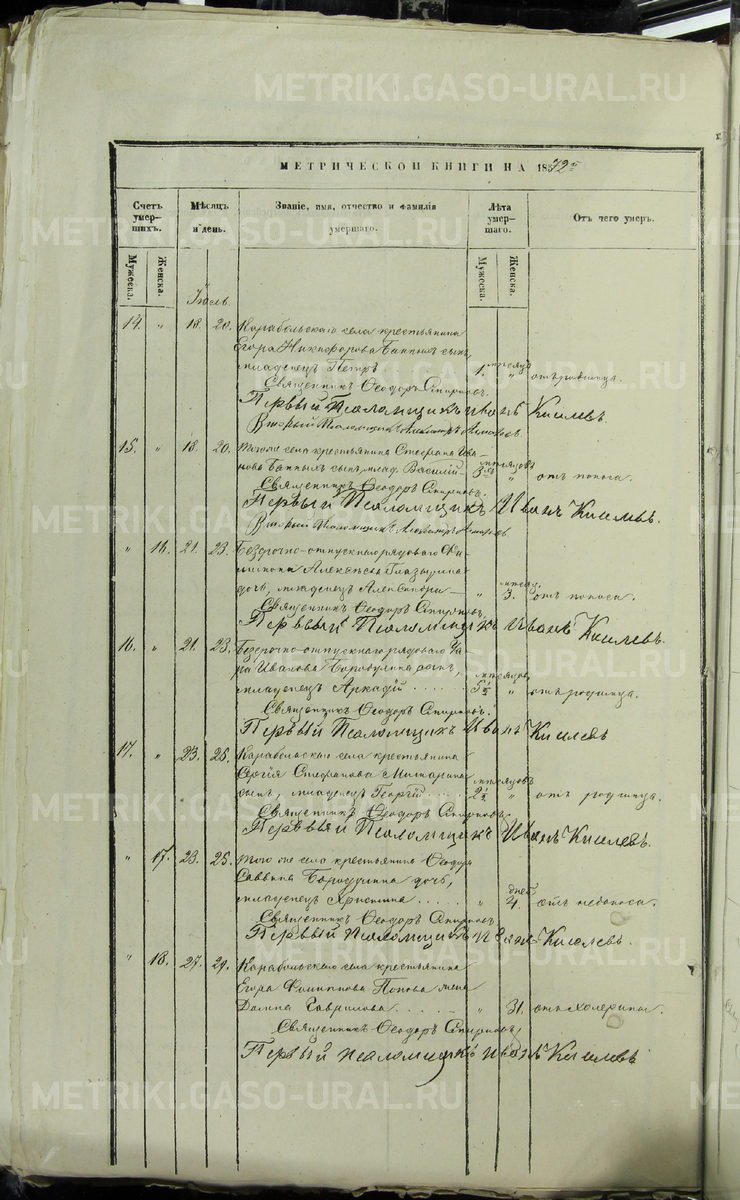 МЕТРИЧЕСКОЙ КНИГИ НА 1872й
Счетъ умершихъ.
Мѣсяцъ и день.
Званіе, имя, отчество и фамилія умершаго.
Лѣта умершаго.
Отъ чего умеръ.
Мужеска.
Женска.
Мужеска.
Женска.
Іюль.
14. " 18. 20. Карабольскаго села крестьянина
Егора Никифорова Банныхъ сынъ,
младенецъ Петръ 1. мѣсяца " отъ родимца.
Священникъ Ѳеодоръ Смирновъ.
Первый Псаломщикъ Иванъ Киселевъ.
Второй Псаломщикъ Александръ
15. " 18. 20. Того же села крестьянина Стефана Ива-
нова Банныхъ сынъ, млад. Василій 3. мѣсяцовъ " отъ поноса.
Священникъ Ѳеодоръ Смирновъ.
Первый Псаломщикъ Иванъ Киселевъ.
Второй Псаломщикъ Александръ
" 16. 21. 23. Безсрочно-отпускнаго рядоваго Фи-
лимона Алексѣева Глазырина
дочь, младенецъ Александра " 3. мѣсяц. отъ поноса.
Священникъ Ѳеодоръ Смирновъ.
Первый Псаломщикъ Иванъ Киселевъ.
16. " 21. 23. Безсрочно-отпускнаго рядоваго
Иванова Бородулина сынъ,
младенецъ Аркадій 5½ мѣсяцовъ " отъ родимца.
Священникъ Ѳеодоръ Смирновъ.
Первый Псаломщикъ Иванъ Киселевъ
17. " 23. 25. Карабольскаго села крестьянина
Сергія Стефанова сынъ, младенецъ Георгій 2½ мѣсяцовъ " отъ родимца.
Священникъ Ѳеодоръ Смирновъ.
Первый Псаломщикъ Иванъ Киселевъ.
" 17. 23. 25. Того же села крестьянина Ѳеодора
Саввина Бородулина дочь,
младенецъ Христина " 4. дней отъ
Священникъ Ѳеодоръ Смирновъ.
Первый Псаломщикъ Иванъ Киселевъ.
" 18. 27. 29. Карабольскаго села крестьянина
Егора Филиппова Попова жена
Домна Гаврилова " 31. отъ холерины.
Священникъ Ѳеодоръ Смирновъ,
Первый Псаломщикъ Иванъ Киселевъ
METRIKI.GASO-URAL.RU